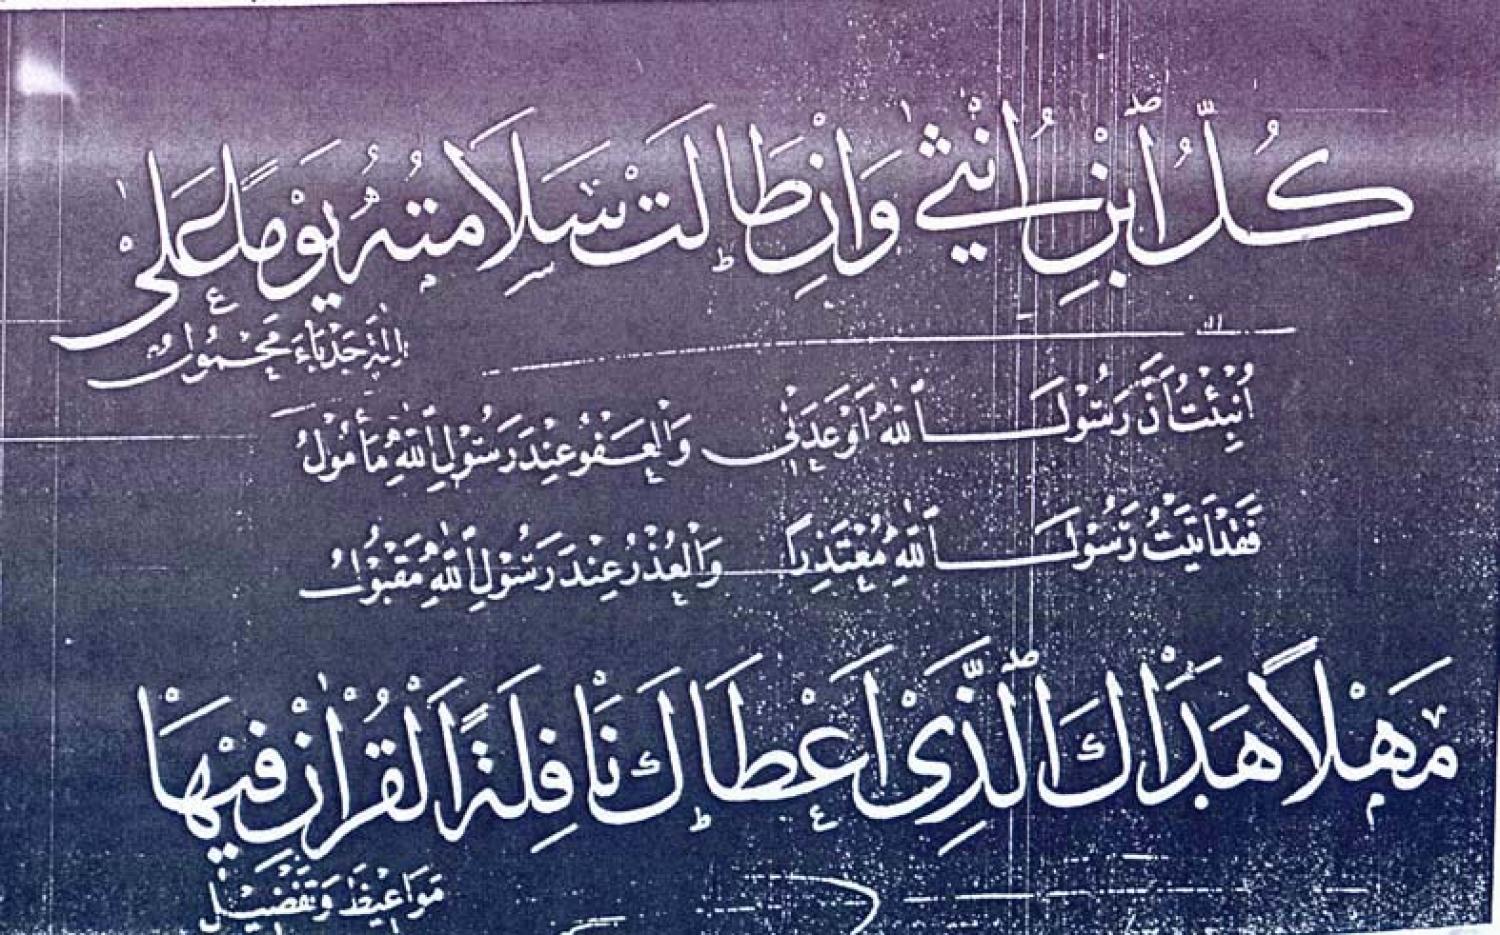 كُلُّ ابْنِ اُنْثٰى وَاِنْ طَالَتْ سَلَامَتُهُ يَوْمًا عَلٰى
اٰلَةٍ حَدْبَاءَ مَحْمُولُ
اُنْبِئْتُ اَنَّ رَسُولَ اللهِ اَوْعَدَنِى وَالْعَفْوُ عِنْدَ رَسُولِ اللهِ مَأْمُولُ
فَقَدْ اَتَيْتُ رَسُولَ اللهِ مُعْتَذِرًا وَالْعُذْرُ عِنْدَ رَسُولِ اللهِ مَقْبُولُ
مَهْلًا هَدَاكَ الَّذِى اَعْطَاكَ نَافِلَةَ الْقُرْاٰنِ فِيهَا
مَوَاعِيظٌ وَتَفْضِيلُ